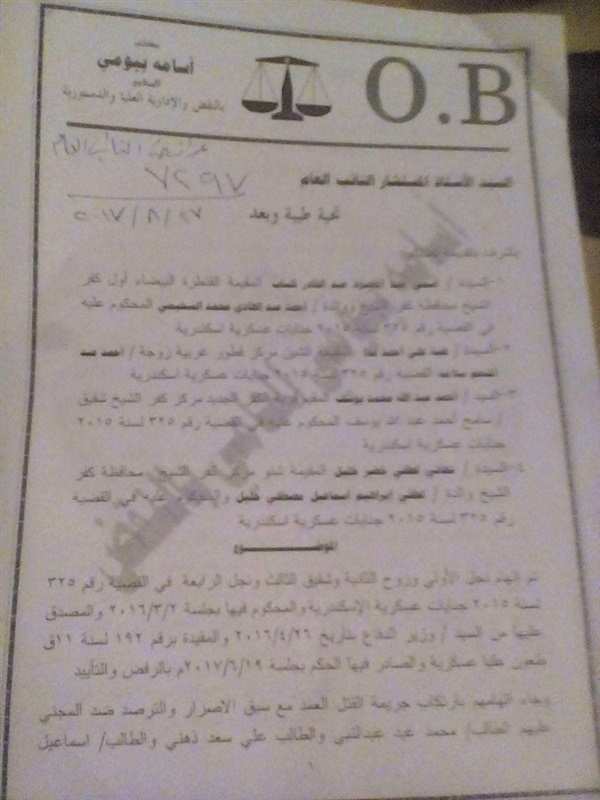 مكتب
أسامه بيومي
المحامي
بالنقض والإدارية العليا والدستورية
O.B
عرائض النائب العام
٧٢٩٧
٢٠١٧/٨/٢٧
السيد الأستاذ المستشار النائب العام
تحية طيبة وبعد
يتشرف بتقديمه لسيادتكم
١- السيدة / عبد القادر المقيمة القنطرة البيضاء أول كفر
الشيخ محافظة كفر الشيخ ووالدة / أحمد عبد الهادي محمد السحيمي المحكوم عليه
في القضية رقم ٣٢٥ لسنة ٢٠١٥ جنايات عسكرية اسكندرية
٢- السيدة / علي أحمد المقيمة الشين مركز قطور غربية زوجة / أحمد عبد
المنعم سلامه القضية رقم ٣٢٥ لسنة ٢٠١٥ جنايات عسكرية اسكندرية
٣- السيد / أحمد عبد الله محمد يوسف المقيم الكفر الجديد مركز كفر الشيخ شقيق
/ سامح أحمد عبد الله يوسف المحكوم عليه في القضية رقم ٣٢٥ لسنة ٢٠١٥
جنايات عسكرية اسكندرية
٤- السيدة / لطفي خضر خليل المقيمة مركز كفر الشيخ محافظة كفر
الشيخ والدة / لطفي ابراهيم اسماعيل مصطفى خليل والمحكوم عليه في القضية
رقم ٣٢٥ لسنة ٢٠١٥ جنايات عسكرية اسكندرية
الموضوع
تم إتهام نجل الأولي وزوج الثانية وشقيق الثالث ونجل الرابعة في القضية رقم ٣٢٥
لسنة ٢٠١٥ جنايات عسكرية الإسكندرية والمحكوم فيها بجلسة ٢٠١٦/٣/٢ والمصدق
عليها من السيد / وزير الدفاع بتاريخ ٢٠١٦/٤/٢٦ والمقيدة برقم ١٩٢ لسنة ١١ق
طعون عليا عسكرية والصادر فيها الحكم بجلسة ٢٠١٧/٦/١٩م بالرفض والتأييد
وجاء اتهامهم بارتكاب جريمة القتل العمد مع سبق الاصرار والترصد ضد المجني
عليهم الطالب/ محمد عيد عبدالنبي والطالب علي سعد ذهني والطالب/ اسماعيل
١